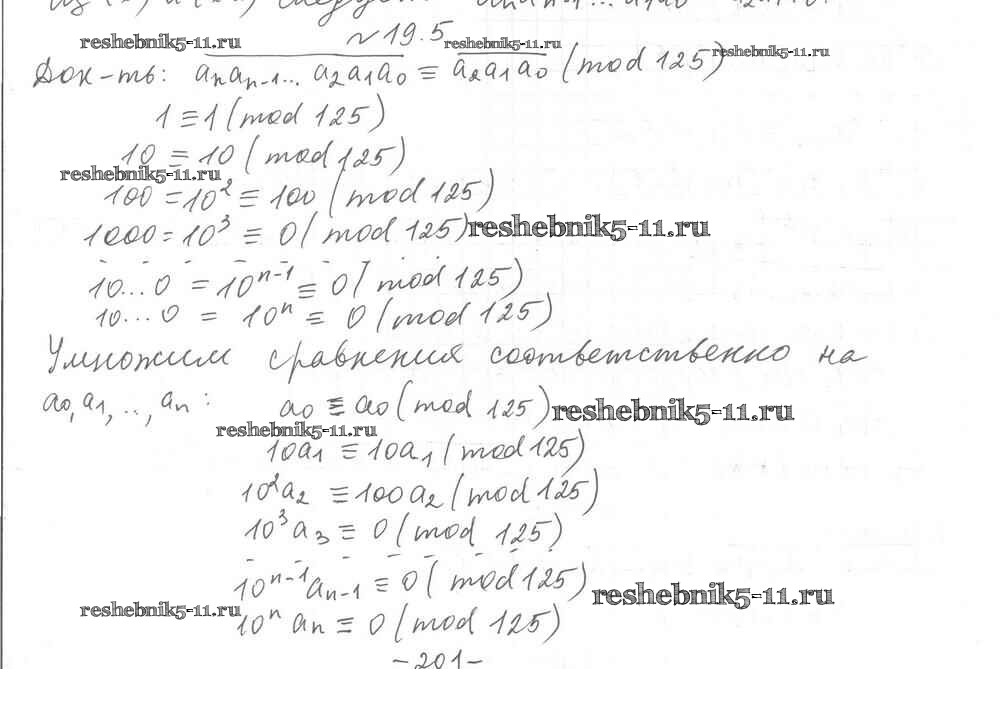 № 19.5
reshebnik5-11.ru reshebnik5-11.ru reshebnik5-11.ru
Док-ть: aₙaₙ₋₁... a₂a₁a₀ ≡ a₂a₁a₀ (mod 125)
1 ≡ 1 (mod 125)
10 ≡ 10 (mod 125)
reshebnik5-11.ru
100 = 10² ≡ 100 (mod 125)
1000 = 10³ ≡ 0 (mod 125) reshebnik5-11.ru
10...0 = 10ⁿ⁻¹ ≡ 0 (mod 125)
10...0 = 10ⁿ ≡ 0 (mod 125)
Умножим сравнения соответственно на
a₀, a₁, .., aₙ: a₀ ≡ a₀ (mod 125) reshebnik5-11.ru
reshebnik5-11.ru
10a₁ ≡ 10a₁ (mod 125)
10²a₂ ≡ 100a₂ (mod 125)
10³a₃ ≡ 0 (mod 125)
10ⁿ⁻¹aₙ₋₁ ≡ 0 (mod 125) reshebnik5-11.ru
reshebnik5-11.ru 10ⁿaₙ ≡ 0 (mod 125)
-201-